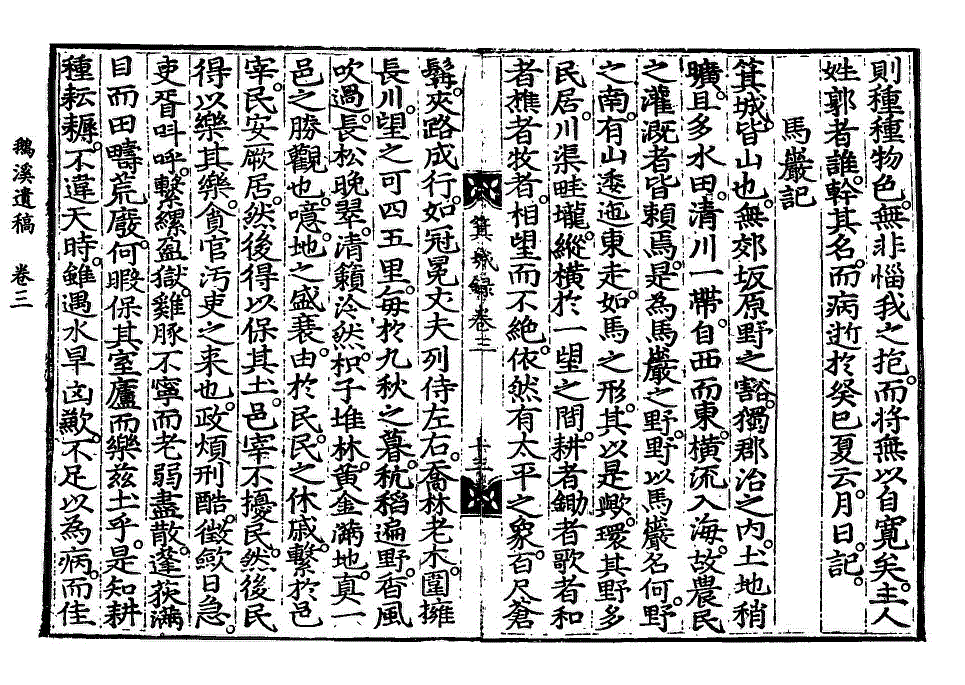 則種種物色。無非惱我之抱。而將無以自寬矣。主人
姓郭者誰。幹其名。而病逝於癸巳夏云。月日記。
馬巖記
箕城。皆山也。無郊坂原野之豁。獨郡治之內。土地稍
曠。且多水田。清川一帶。自西而東。橫流入海。故農民
之灌溉者皆賴焉。是為馬巖之野。野以馬巖名何。野
之南。有山逶迤東走。如馬之形。其以是歟。環其野多
民居。川渠畦壠。縱橫於一望之間。耕者鋤者歌者和
者樵者牧者。相望而不絶。依然有太平之象。百尺蒼
箕城錄 卷之三 十三
髥。夾路成行。如冠冕丈夫列侍左右。喬林老木。圍擁
長川。望之可四五里。每於九秋之暮。秔稻遍野。香風
吹過。長松晚翠。清籟泠然。枳子堆林。黃金滿地。真一
邑之勝觀也。噫。地之盛衰。由於民。民之休戚。繫於邑
宰。民安厥居。然後得以保其土。邑宰不擾民。然後民
得以樂其樂。貪官汚吏之来也。政煩刑酷。徵斂日急。
吏胥叫呼。繫縲盈獄。雞豚不寧而老弱盡散。蓬荻滿
目而田疇荒廢。何暇保其室廬而樂玆土乎。是知耕
種耘耨。不違天時。雖遇水旱凶歉。不足以為病。而佳
鵝溪遺稿 卷三